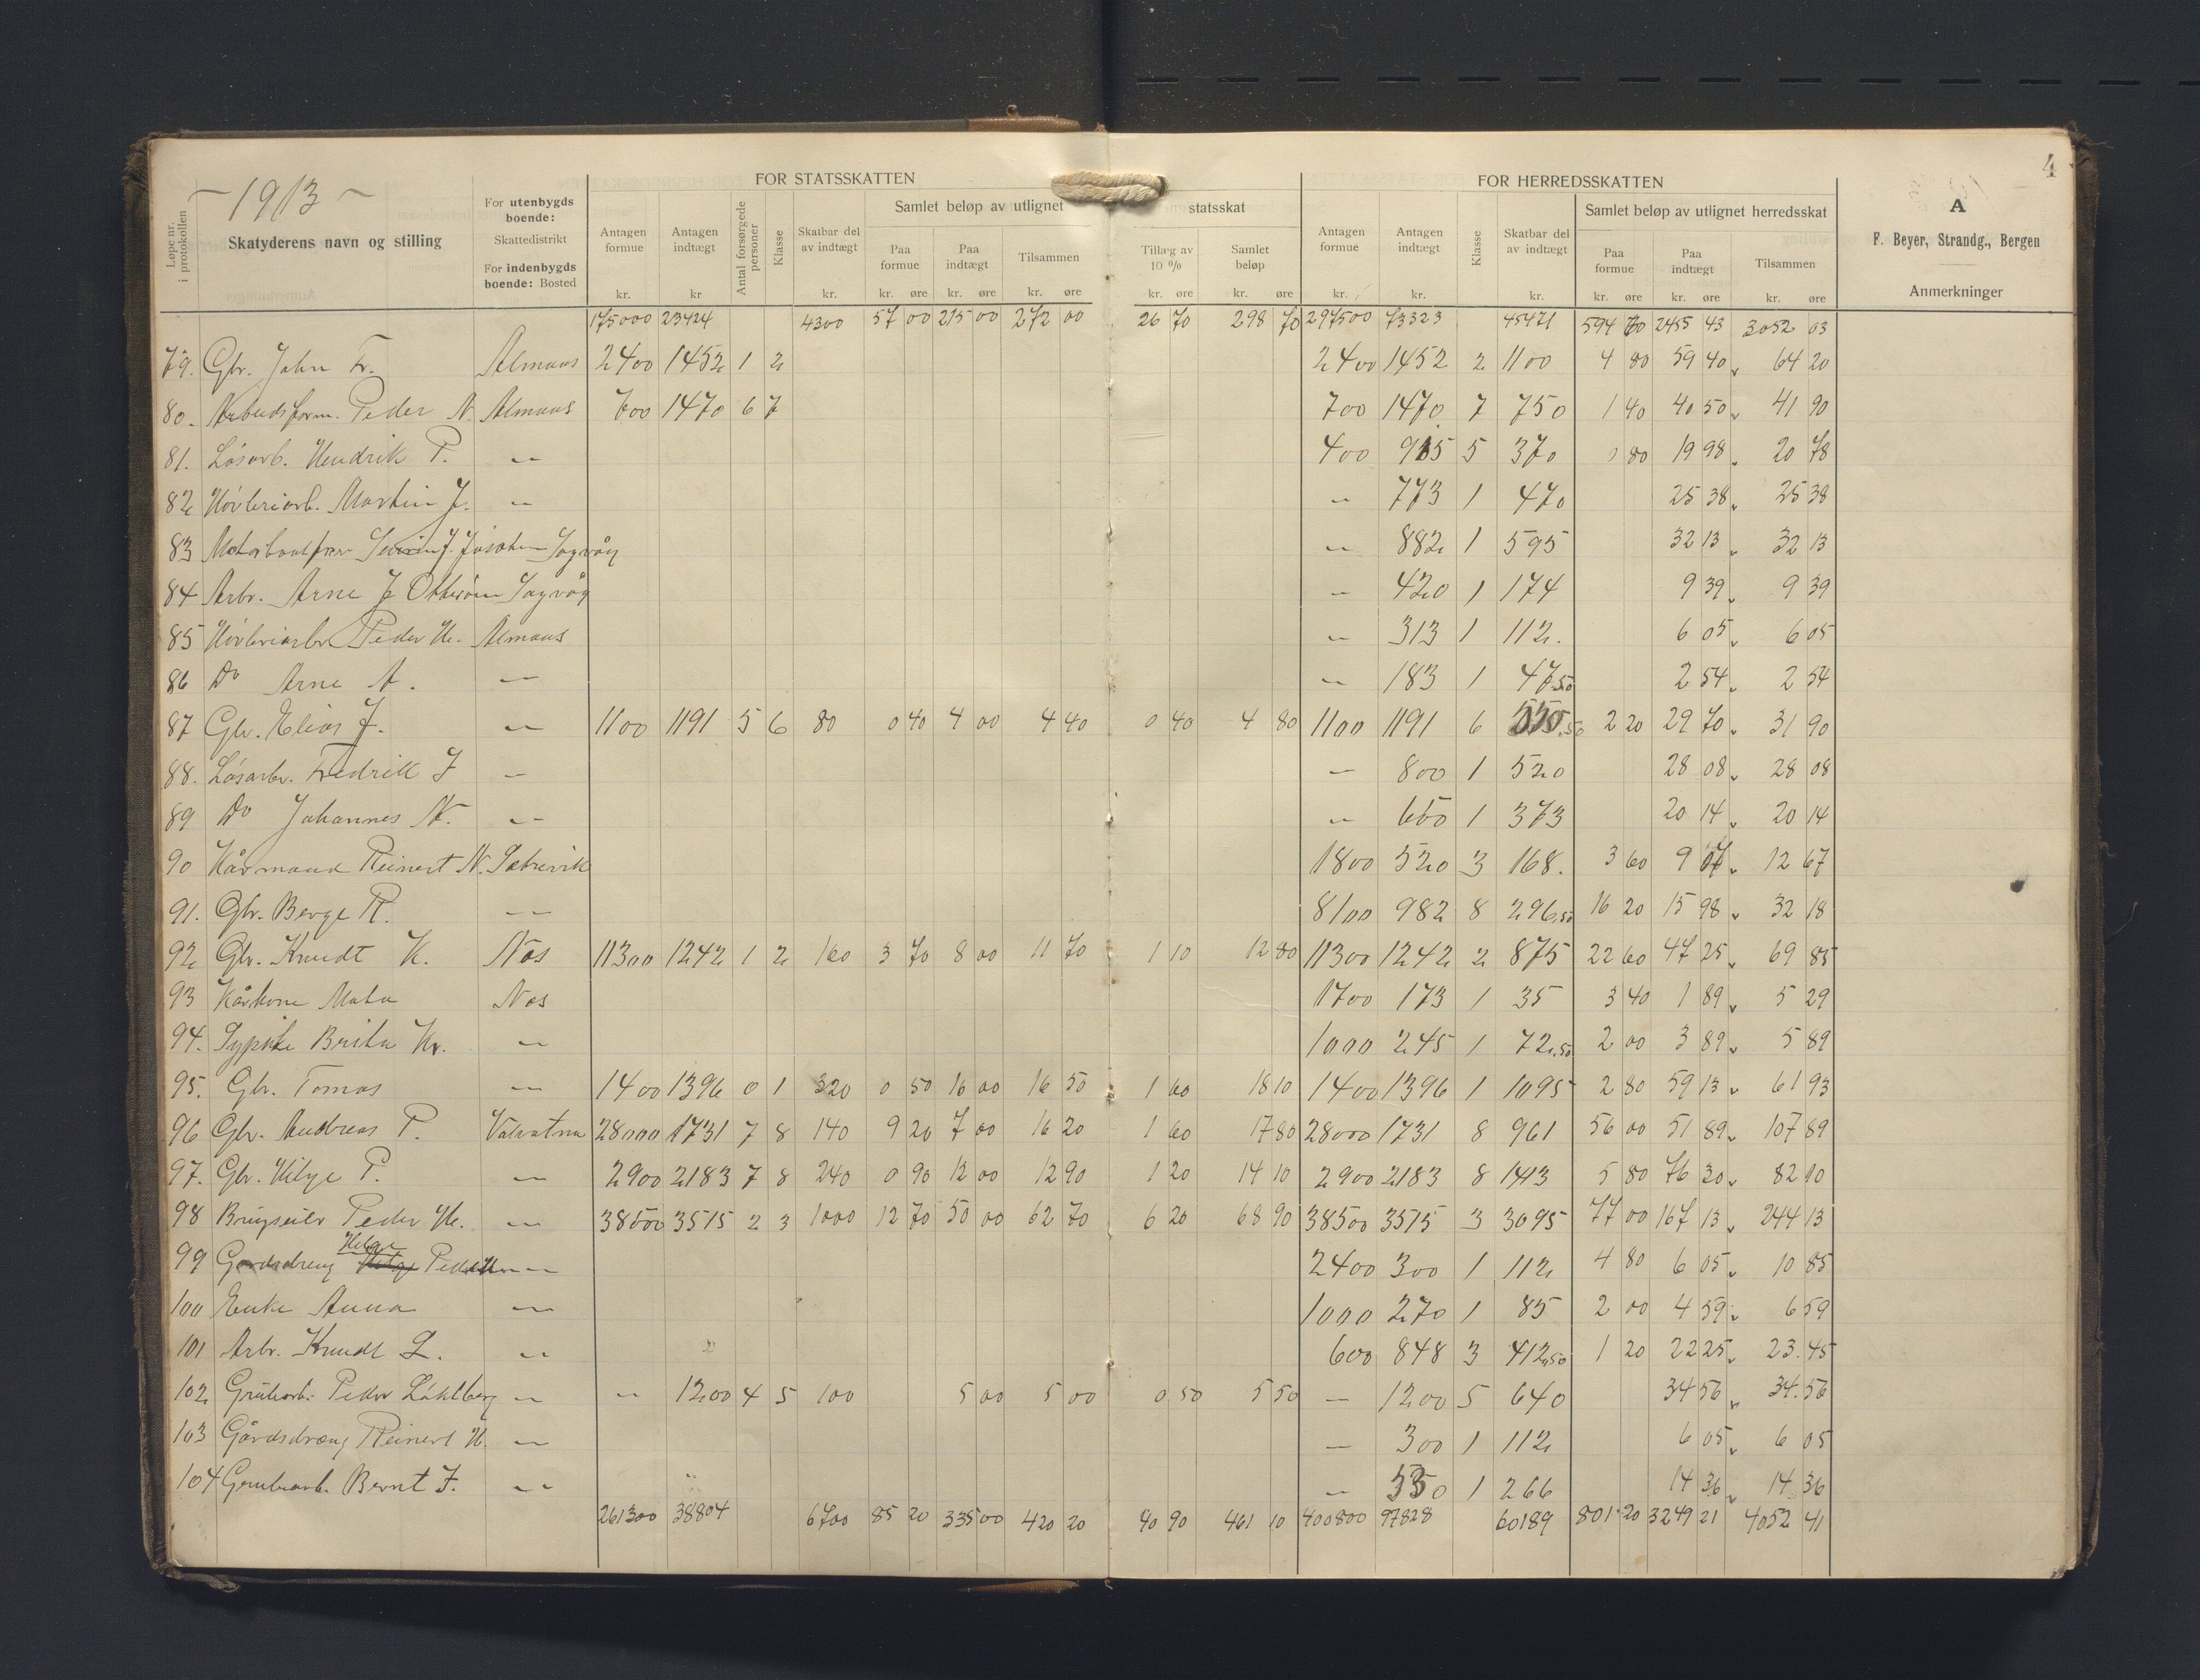 4
– 1913 –
FOR STATSSKATTEN
FOR HERREDSSKATTEN
Løpe nr. i protokollen
Skatyderens navn og stilling
For utenbygds boende: Skattedistrikt
For indenbygds boende: Bosted
Antagen formue kr.
Antagen indtægt kr
Antal forsørgede personer
Klasse
Skatbar del av indtægt kr.
Samlet beløp av utlignet statsskat
Paa formue kr. øre
Paa indtægt kr. øre
Tilsammen kr. øre
Tillæg av 10 % kr. øre
Samlet beløp kr. øre
Antagen formue kr.
Antagen indtægt kr.
Klasse
Skatbar del av indtægt kr.
Samlet beløp av utlignet herredsskat
Paa formue kr. øre
Paa indtægt kr. øre
Tilsammen kr. øre
A
F. Beyer, Strandg., Bergen
Anmerkninger
175000 23424 4300 57 00 215 00 272 00 26 70 298 70 297500 73323 45471 594 60 2455 43 3052 03
79. Gbr. John Fr. Almaas 2400 1452 1 2 2400 1452 2 1100 4 80 59 40 64 20
80. Arbeidsform. Peder N. Almaas 700 1470 6 7 700 1470 7 750 1 40 40 50 41 90
81. Løsarb. Hendrik P. -"- 400 915 5 370 0 80 19 98 20 78
82 Høvleriarb. Martin J. -"- -"- 773 1 470 25 38 25 38
83 Motorbaatfører J. Sagvåg -"- 882 1 595 32 13 32 13
84 Arbr. Arne J Sagvåg -"- 420 1 174 9 39 9 39
85 Høvleriarbr Peder H. Almaas -"- 313 1 112. 6 05 6 05
86 Do Arne A. -"- -"- 183 1 47.50 2 54 2 54
87 Gbr. Elias J. -"- 1100 1191 5 6 80 0 40 4 00 4 40 0 40 4 80 1100 1191 6 550.50 2 20 29 70 31 90
88. Løsarbr. Fredrik J -"- — 800 1 520 28 08 28 08
89 Do Johannes N. -"- -"- 650 1 373 20 14 20 14
90 Kårmand Reinert N. Sætrevik 1800 520 3 168. 3 60 9 07 12 67
91. Gbr. Berge R. -"- 8100 982 8 296.50 16 20 15 98 32 18
92 Gbr. Knudt K. Nøs 11300 1242 1 2 160 3 70 8 00 11 70 1 10 12 80 11300 1242 2 875 22 60 47 25 69 85
93 Kårkone Mata Nøs 1700 173 1 35 3 40 1 89 5 29
94. Sypike Brita Kr. -"- 1000 245 1 72.50 2 00 3 89 5 89
95. Gbr. Tomas -"- 1400 1396 0 1 320 0 50 16 00 16 50 1 60 18 10 1400 1396 1 1095 2 80 59 13 61 93
96 Gbr. Andreas P. Valvatna 28000 1731 7 8 140 9 20 7 00 16 20 1 60 17 80 28000 1731 8 961 56 00 51 89 107 89
97. Gbr. Helge P. -"- 2900 2183 7 8 240 0 90 12 00 12 90 1 20 14 10 2900 2183 8 1413 5 80 76 30 82 10
98 Brugseier Peder H. -"- 38500 3515 2 3 1000 12 70 50 00 62 70 6 20 68 90 38500 3515 3 3095 77 00 167 13 244 13
99 Gårdsdreng Helge Peder -"- 2400 300 1 112 4 80 6 05 10 85
100 Enke Anna -"- 1000 270 1 85 2 00 4 59 6 59
101 Arbr. Knudt L. -"- 600 848 3 412.50 1 20 22 25 23.45
102 Grubearb. Peder -"- -"- 1200 4 5 100 5 00 5 00 0 50 5 50 — 1200 5 640 34 56 34.56
103 Gårdsdreng Reinert H. -"- — 300 1 112 6 05 6 05
104 Grubearb. Bernt J. -"- -"- 550 1 266 14 36 14 36
261300 38804 6700 85 20 335 00 420 20 40 90 461 10 400800 97828 60189 801 20 3249 21 4052 41